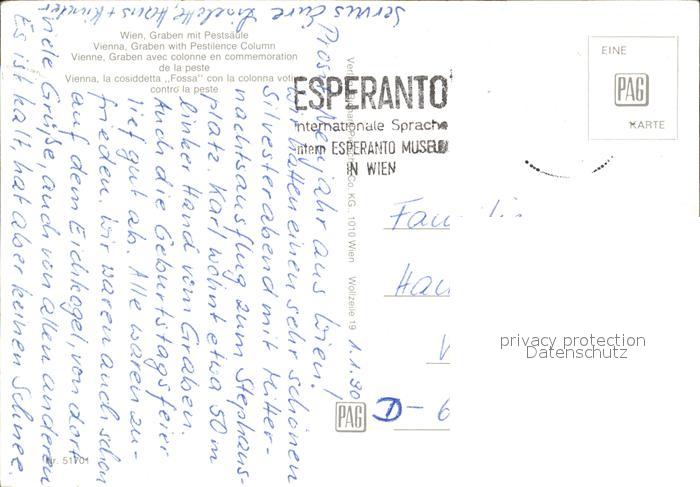 Wien, Graben mit Pestsäule
Vienna, Graben with Pestilence Column
Vienne, Graben avec colonne en commemoration
de la peste
Vienna, la cosiddetta ,,Fossa" con la colonna voti
contro la peste
ESPERANTO
internationale Sprache
intern ESPERANTO MUSEU
IN WIEN
EINE
PAG
KARTE
Co KG. 1010 Wien Wollzeile 19
PAG
Nr. 51701
1.1.90
Prosit Neujahr aus Wien!
Wir hatten einen sehr schönen
Silvesterabend mit Mitter-
nachtsausflug zum Stephans-
platz. Karl wohnt etwa 50 m
linker Hand vom Graben.
Auch die Geburtstagsfeier
lief gut ab. Alle waren zu-
frieden. Wir waren auch schon
auf dem Eichkogel, von dort
viele Grüße auch von allen anderen
Es ist kalt, hat aber keinen Schnee.
Servus Eure Liselotte, Hans + Kinder
Fam
Hau
D-6
privacy protection
Datenschutz